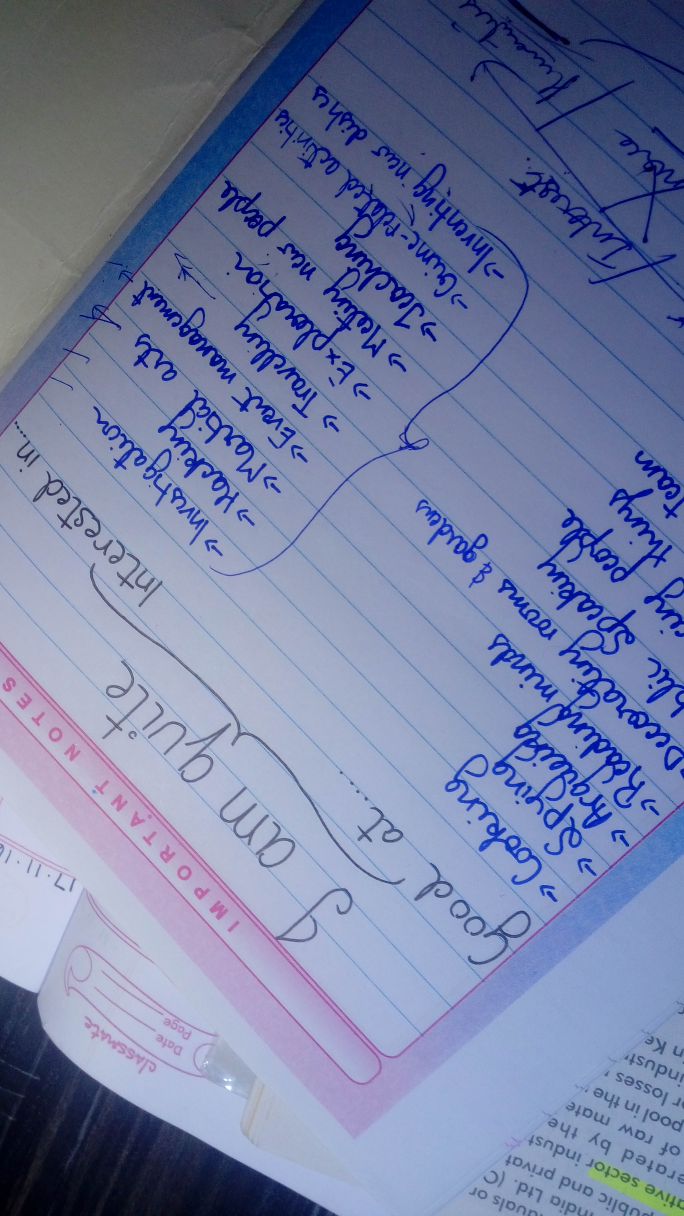 IMPORTANT NOTES
I am quite
Good at....
Interested in.....
→ Cooking
→ Spying
→ Argueing
→ Reading minds
→ Decorating rooms & gardens
speaking
people
things
team
→ Investigation
→ Hacking
→ Martial arts
→ Event management
→ Travelling
→ Exploration
→ Meeting new people
→ Teaching
→ Crime-related activities
→ Inventing new dishes
Interest
Humanities
17.11.1
classmate
Date
Page
India Ltd. (C
public and privat
ative sector indust
erated by the
of raw mate
pool in the
or losses
indust
in Ke